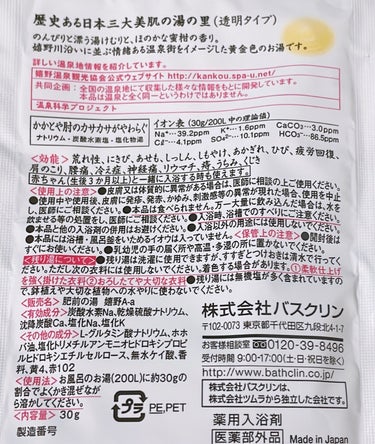 歴史ある日本三大美肌の湯の里(透明タイプ)
のんびりと漂う湯けむりと、ほのかな蜜柑の香り。
嬉野川沿いに並ぶ情緒ある温泉街をイメージした黄金色のお湯です。
詳しい温泉地情報を紹介しています。
嬉野温泉観光協会公式ウェブサイト http://kankou.spa-u.net/
共同企画:全国の温泉地にて収集した様々な情報をもとに開発しました。
本品は温泉と全く同一というわけではありません。
温泉科学プロジェクト
かかとや肘のカサカサがやわらぐ
ナトリウム・炭酸水素塩・塩化物湯
イオン表(30g/200L中の理論値)
Na⁺…39.2ppm K⁺…1.6ppm CaCO₃…3.0ppm
Cl⁻…4.1ppm SO₄²⁻…10.0ppm HCO₃⁻…86.5ppm
<効能> 荒れ性、にきび、あせも、しっしん、しもやけ、あかぎれ、ひび、疲労回復、
肩のこり、腰痛、冷え症、神経痛、リウマチ、痔、うちみ、くじき
赤ちゃん(生後3か月以上)と一緒に入浴する時も使えます。
<使用上の注意> ●皮膚又は体質的に異常がある場合は、医師に相談の上ご使用ください。
●使用中や使用後、皮膚に発疹、発赤、かゆみ、刺激感等の異常が現れた場合、使用を中止
し、医師にご相談ください。●本品は食べられません。万一大量に飲み込んだ場合は、水を
飲ませる等の処置をし、医師にご相談ください。●入浴時、浴槽でのすべりにご注意ください。
●本品と他の入浴剤の併用はお避けください。●入浴以外の用途には使用しないでください。
●本品には浴槽・風呂釜をいためるイオウは入っていません。<保管上の注意> ●開封後は
すぐにお使いください。●乳幼児の手の届く所や高温・多湿の所に置かないでください。
<残り湯について> ●残り湯は洗濯に使用できますが、すすぎとつけおきは清水で行って
ください。ただし次の衣料には使用しないでください。着色する場合があります。①柔軟仕上げ
を強く掛けた衣料②おろしたてや大切な衣料 ●残り湯には無機塩が多く含まれていますの
で、鉢植えや大切な植物への水やりに使わないでください。
<販売名> 肥前の湯 嬉野A-a
<有効成分> 炭酸水素Na、乾燥硫酸ナトリウム、
沈降炭酸Ca、塩化Na、塩化K
<その他の成分> L-グルタミン酸ナトリウム、ホホ
バ油、塩化トリメチルアンモニオヒドロキシプロピ
ルヒドロキシエチルセルロース、無水ケイ酸、香
料、黄4、赤102
<使用法> お風呂のお湯(200L)に約30gの
割合でよくかき混ぜながら溶かしてください。
<内容量> 30g
製造番号
プラ PE,PET
株式会社バスクリン
〒102-0073 東京都千代田区九段北4-1-7
お客様相談室 0120-39-8496
受付時間 9:00-17:00(土・日・祝日を除く)
http://www.bathclin.co.jp/
株式会社バスクリンは、
株式会社ツムラから独立した会社です。
薬用入浴剤 Made in Japan
医薬部外品